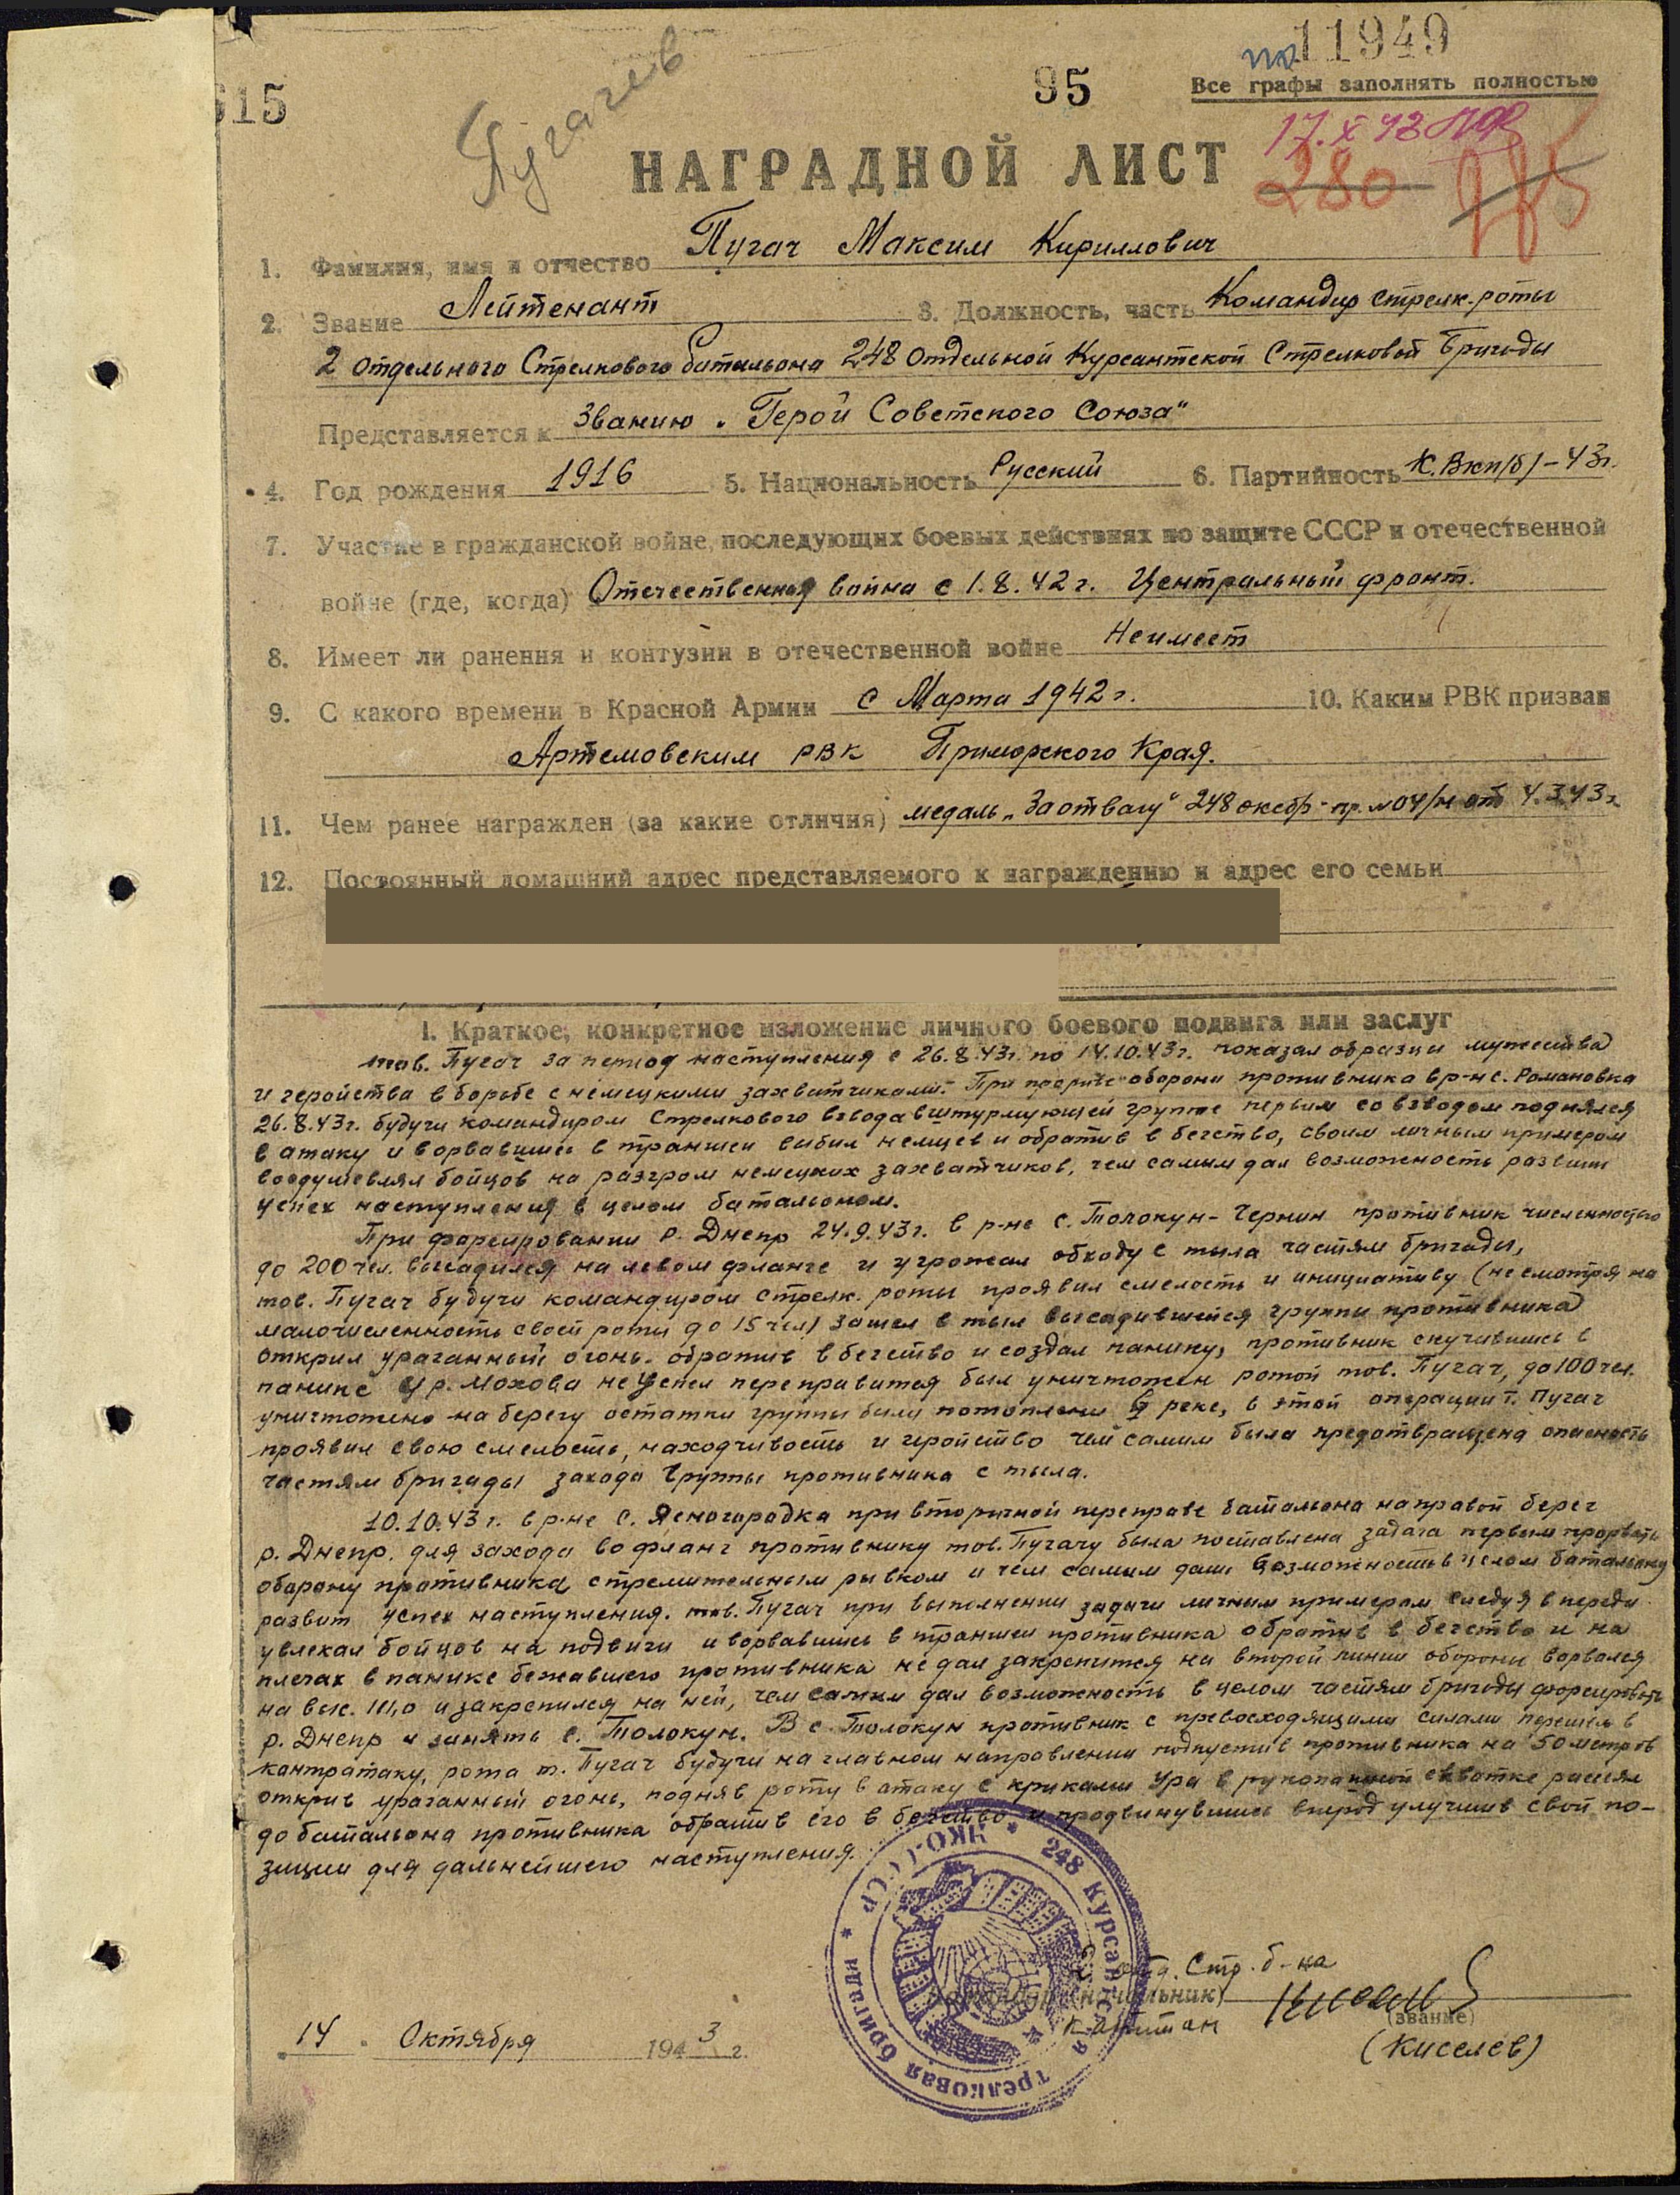 11949
95
Все графы заполнять полностью
615
Пугачев
17.X 43
НАГРАДНОЙ ЛИСТ
280
1. Фамилия, имя и отчество Пугач Максим Кириллович
2. Звание Лейтенант 3. Должность, часть Командир Стрелк. роты
2 отдельного Стрелкового батальона 248 отдельной Курсантской Стрелковой Бригады
Представляется к Званию „Герой Советского Союза"
4. Год рождения 1916 5. Национальность Русский 6. Партийность К. ВКП(б) – 43г.
7. Участие в гражданской войне, последующих боевых действиях по защите СССР и отечественной
войне (где, когда) Отечественная война с 1.8.42 г. Центральный фронт.
8. Имеет ли ранения и контузии в отечественной войне Неимеет
9. С какого времени в Красной Армии с Марта 1942 г. 10. Каким РВК призван
Артемовским РВК Приморского Края.
11. Чем ранее награжден (за какие отличия) медаль „За отвагу" 248 оксбр - пр. №04/н от 4.3.43 г.
12. Постоянный домашний адрес представляемого к награждению и адрес его семьи
1. Краткое, конкретное изложение личного боевого подвига или заслуг
тов. Пугач за период наступления с 26.8.43г. по 14.10.43г. показал образцы мужества
и геройства в борьбе с немецкими захватчиками. При прорыве обороны противника в р-не с. Романовка
26.8.43г. будучи командиром Стрелкового взвода в штурмующей группе первым со взводом поднялся
в атаку и ворвавшись в траншеи выбил немцев и обратив в бегство, своим личным примером
воодушевлял бойцов на разгром немецких захватчиков, чем самым дал возможность развить
успех наступления в целом батальоном.
При форсировании р. Днепр 24.9.43г. в р-не с. Толокун - Чернин противник численностью
до 200 чел. высадился на левом фланге и угрожал обходу с тыла частям бригады,
тов. Пугач будучи командиром стрелк. роты проявил смелость и инициативу (не смотря на
малочисленность своей роты до 15 чел) зашел в тыл высадившейся группы противника
открыл ураганный огонь. обратив в бегство и создал панику, противник скучившись в
панике у р. Мохова не успел переправится был уничтожен ротой тов. Пугач, до 100 чел.
уничтожено на берегу остатки группы были потоплены в реке, в этой операции т. Пугач
проявил свою смелость, находчивость и геройство чем самим была предотвращена опасность
частям бригады захода группы противника с тыла.
10.10.43 г. в р-не с. Ясногородка при вторичной переправе батальона на правой берег
р. Днепр. для захода во фланг противнику тов. Пугачу была поставлена задача первым прорвать
оборону противника стремительным рывком и чем самым дать возможность в целом батальону
развит успех наступления. тов. Пугач при выполнении задачи личным примером следуя впереди
увлекал бойцов на подвиги и ворвавшись в траншеи противника обратив в бегство и на
плечах в панике бежавшего противника не дал закрепится на второй линии обороны ворвался
на выс. 111,0 и закрепился на ней, чем самым дал возможность в целом частям бригады форсировать
р. Днепр и занять с. Толокун. В с. Толокун противник с превосходящими силами перешел в
кантратаку, рота т. Пугач будучи на главном направлении подпустив противника на 50 метров
открыв ураганный огонь, подняв роту в атаку с криками Ура в рукопашной схватке рассеял
до батальона противника обратив его в бегство и продвинувшись вперод улучшив свой по-
зиции для дальнейшего наступления.
НКО-СССР * 248 Курсантская стрелковая бригада *
2 отд. Стр. б-на
Командир (начальник)
Капитан
(звание)
(Киселев)
14 Октября 1943 г.